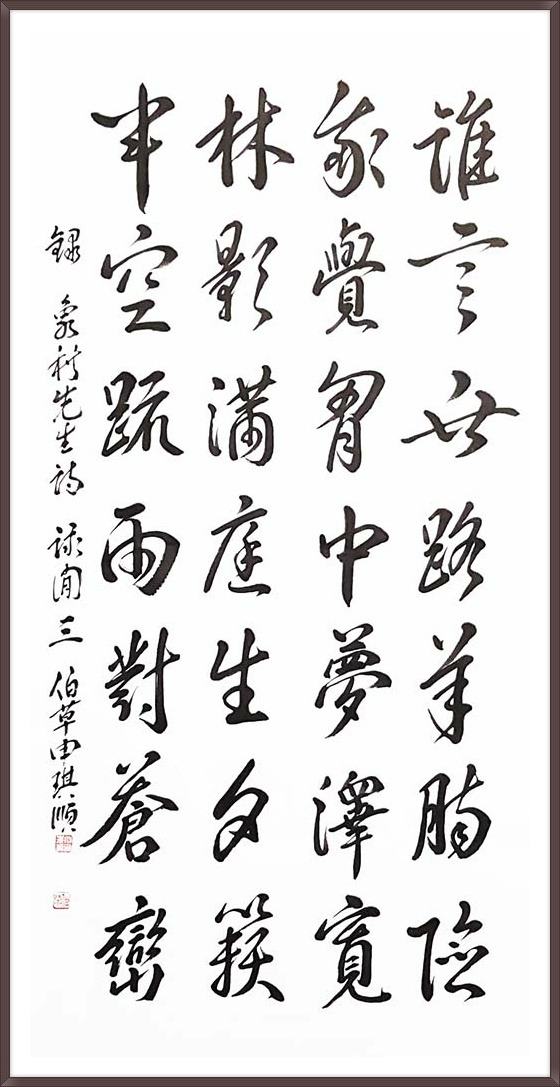 誰言世路羊腸險
我覺胷中夢澤寬
林影滿庭生夕籟
半空疏雨對蒼巒
錄 象村先生詩 三 伯草